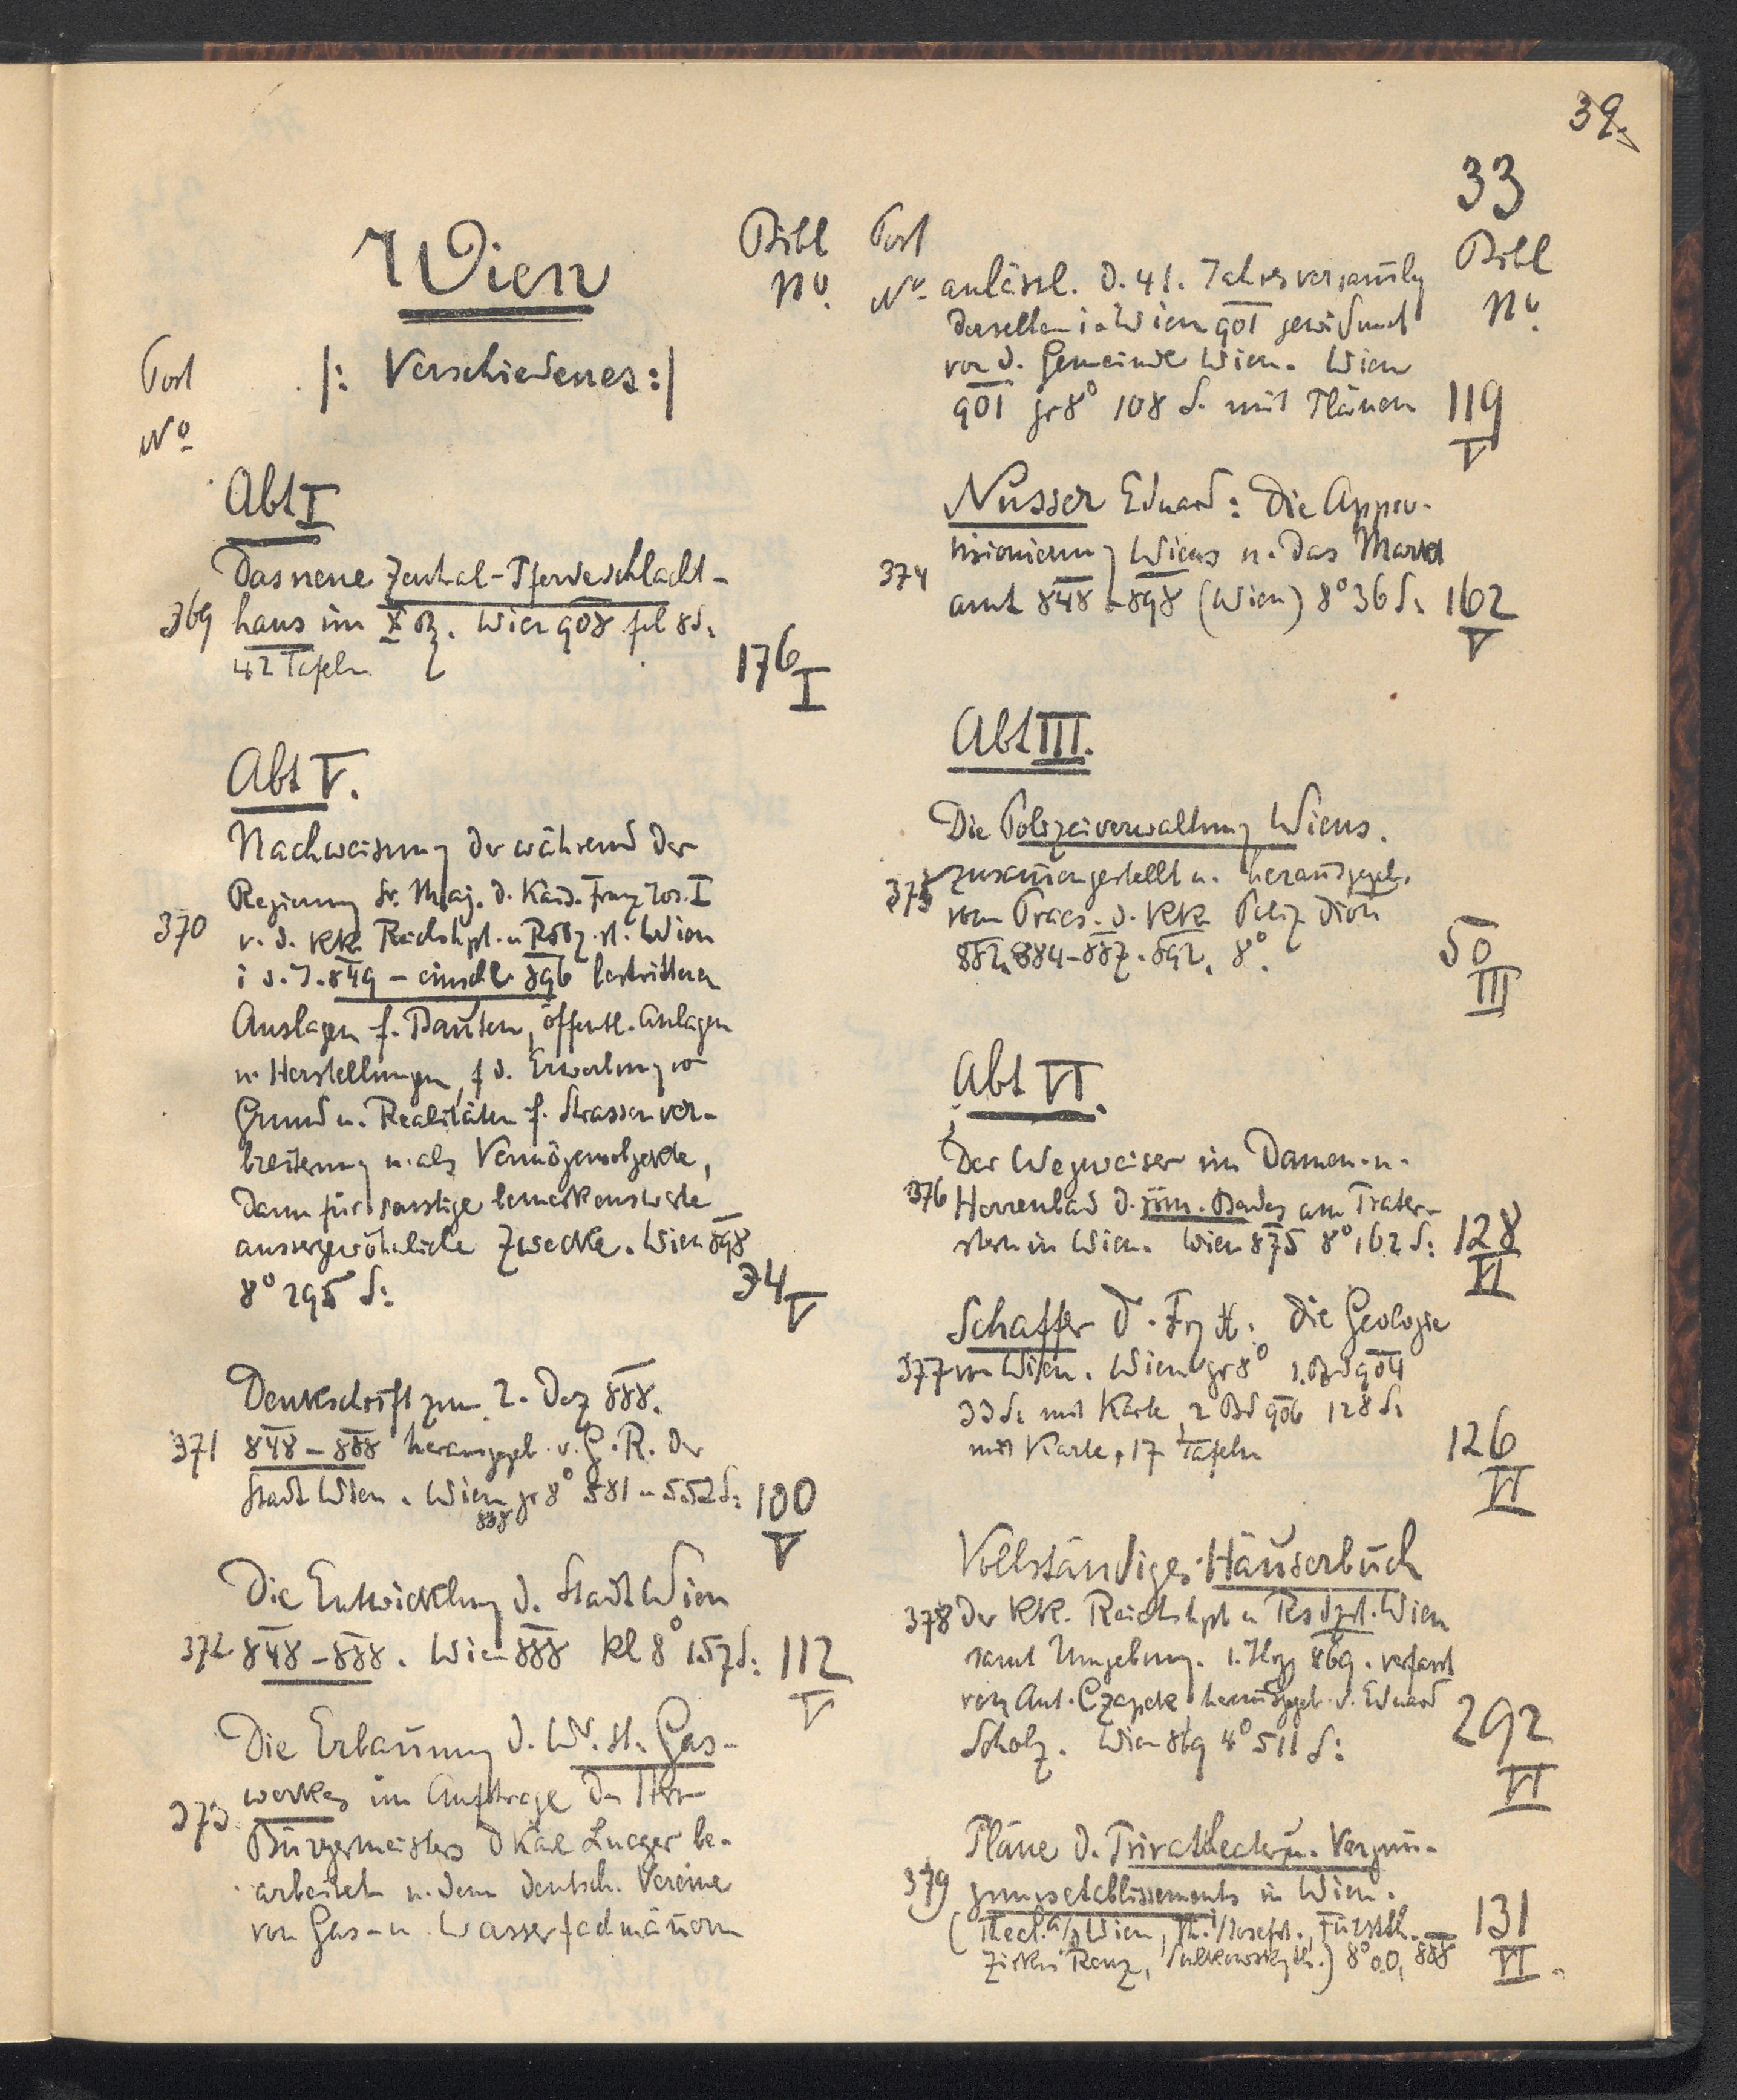 39.
33
Wien
|: Verschiedenes :|
Bibl
No.
Post
No
Abt I
Das neue Zentral-Pferdeschlacht-
369 haus im X Bz. Wien 908 fol 8 S.
42 Tafeln
176
I
Abt V.
Nachweisung der während der
Regierung Sr. Maj. d. Kais. Franz Jos. I
370 v. d. kk Reichshpt. u Rsdz. st. Wien
i d. J. 849 – einschl 896 bestrittenen
Auslagen f. Bauten, öffentl. Anlagen
u. Herstellungen, f d. Erwerbung v
Grund u. Realitäten f. Strassenver-
breiterung u. als Vermögensobjekte,
dann für sonstige bemerkenswerte
aussergewöhnliche Zwecke. Wien 898
8° 295 S.
34
V
Denkschrift zum 2. Dez 888.
371 848 – 888 herausgegeb. v. G. R. der
Stadt Wien. Wien gr 8° 381 u 552 S.
888
100
V
Die Entwicklung d. Stadt Wien
372 848 – 888. Wien 888 kl 8° 157 S. 112
V
Die Erbauung d. Wr. st. Gas-
werkes im Auftrage des Hrn
373 Bürgermeisters D Karl Lueger be-
arbeitet u. dem deutsch. Vereine
von Gas- u. Wasserfachmännern
Post
No
Bibl
No.
anlässl. d. 41. Jahresversamlg
derselben in Wien 901 gewidmet
von d. Gemeinde Wien. Wien
901 gr 8° 108 S. mit Plänen 119
V
Nusser Eduard: Die Appro-
visionierung Wiens u. das Markt
374 amt 848 – 898 (Wien) 8° 36 S. 162
V
Abt III.
Die Polizeiverwaltung Wiens.
375 zusammengestellt u. herausgegeb.
vom Praes. d. KK Poliz Dion
882, 884 – 887. 892. 8°.
50
III
Abt VI.
Der Wegweiser im Damen- u.
376 Herrenbad d. röm. Bades am Prater-
stern in Wien. Wien 875 8° 162 S. 128
VI
Schaffer D. Frz X.: Die Geologie
377 von Wien. Wien gr 8° 1. Bd 904
33 S. mit Karte, 2 Bd 906 128 S.
mit Karte, 17 Tafeln
126
VI
Vollständiges Häuserbuch
378 der kk. Reichshpt u Rsdzst. Wien
samt Umgebung. 1. Jhrg 869. verfasst
von Ant. Czapek, herausgegeb. v. Eduard
Scholz. Wien 869 4° 511 S.
292
VI
Pläne d. Privattheater u. Vergnü-
379 gungsetablissements in Wien.
(Theat. a/d Wien, Th. i/Josefst., Fürstth.
Zirkus Renz, Sulkowskyth.) 8° o. O, 888
131
VI.